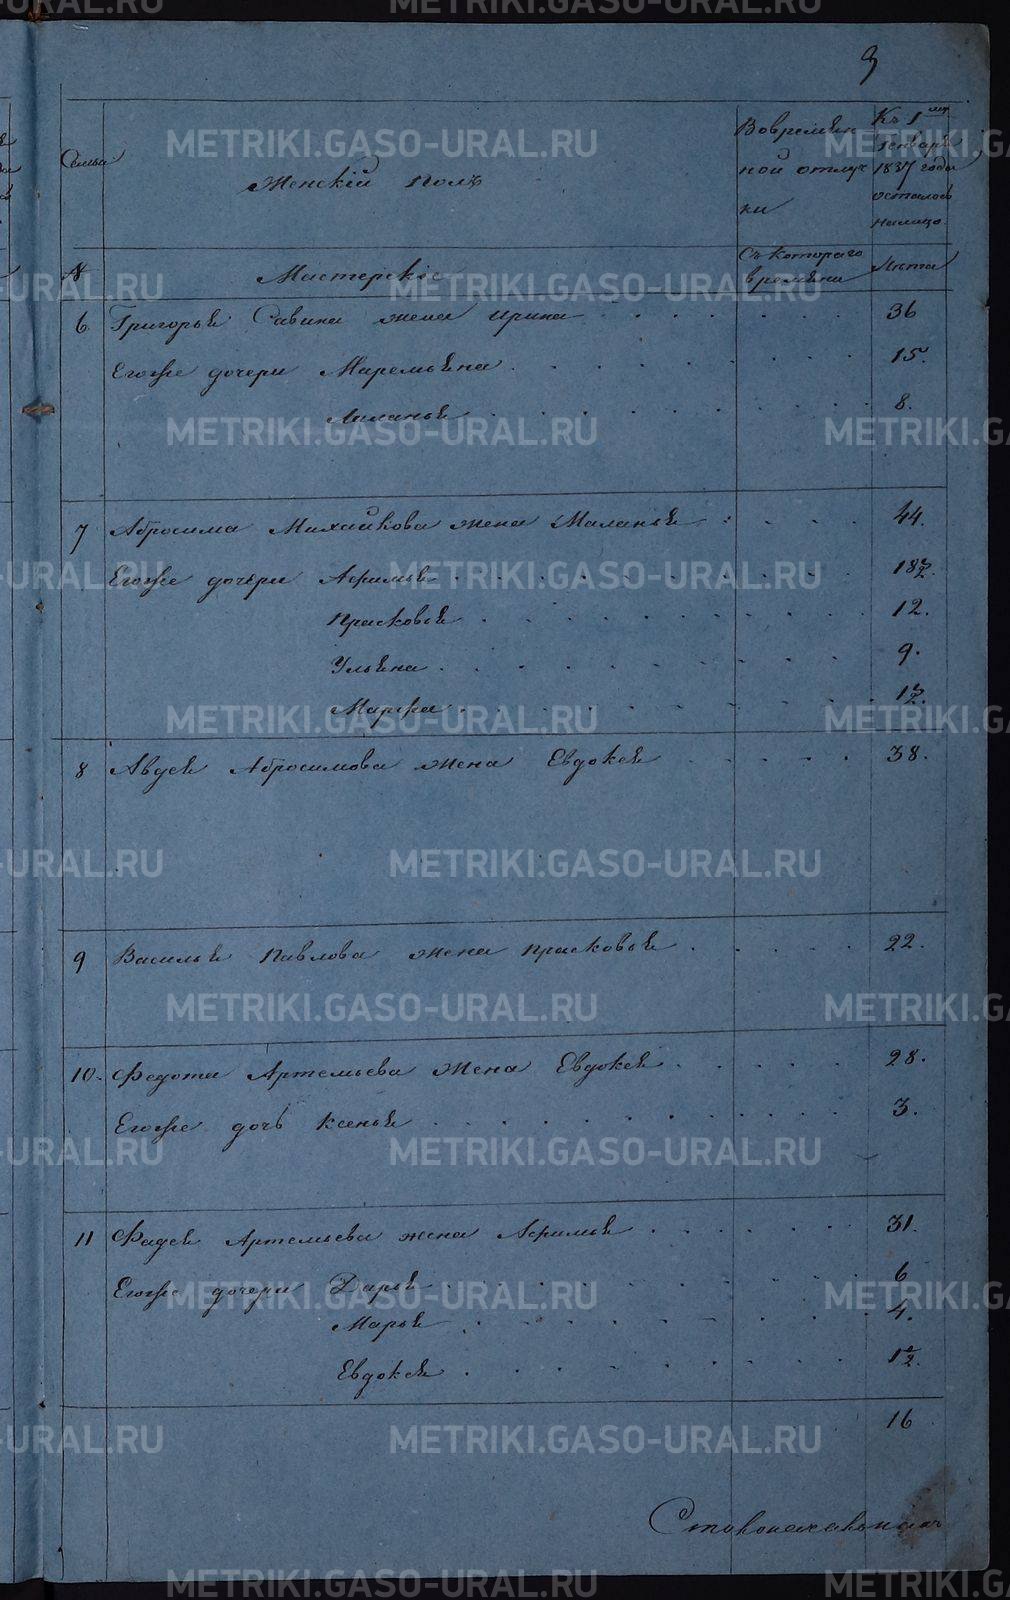 9
Семьи
Женскій полъ
Вовремян
ной отлуч
ки
Къ 1му
Январ
1837 года
осталось
налицо
№
Мастерскіе
Съ котораго
времяни
Лѣта
6 Григорья Савина жена Ирина 36
Егоже дочери Маремьяна 15.
Маланья 8.
7 Абросима Михайлова жена Маланья 44.
Егоже дочери Афимья 18½.
Прасковья 12.
Ульяна 9.
Марфа 1½.
8 Авдея Абросимова жена Евдокея 38.
9 Василья Павлова жена Прасковья 22.
10. Федота Артемьева жена Евдокея 28.
Егоже дочь Ксенья 3.
11 Фадея Артемьева жена Афимья 31.
Егоже дочери Дарья 6
Марья 4.
Евдокея 1½.
16
METRIKI.GASO-URAL.RU